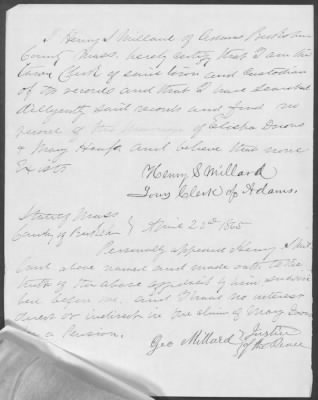 I Henry S Millard of Adams Berkshire
County Mass. hereby certify that I am the
Town Clerk of said town and custodian
of its records and that I have searched
dilligently said records and find no
record of the marriage of Elisha
& Mary and believe that none
Exists
Henry S. Millard
Town Clerk of Adams.
State of Mass
County of Berkshire } 1865
Personally appeared Henry S Mil
lard above named and made oath to the
truth of the above by him
before me. and I have no interest
direct or indirect in the claim of Mary
for a Pension.
Geo Millard } Justice
of the Peace